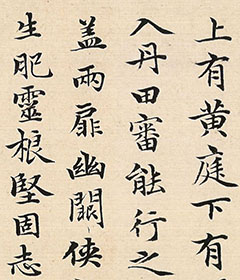 上有黃庭下有
入丹田審能行之
盖兩扉幽闕俠
生肥靈根堅固志